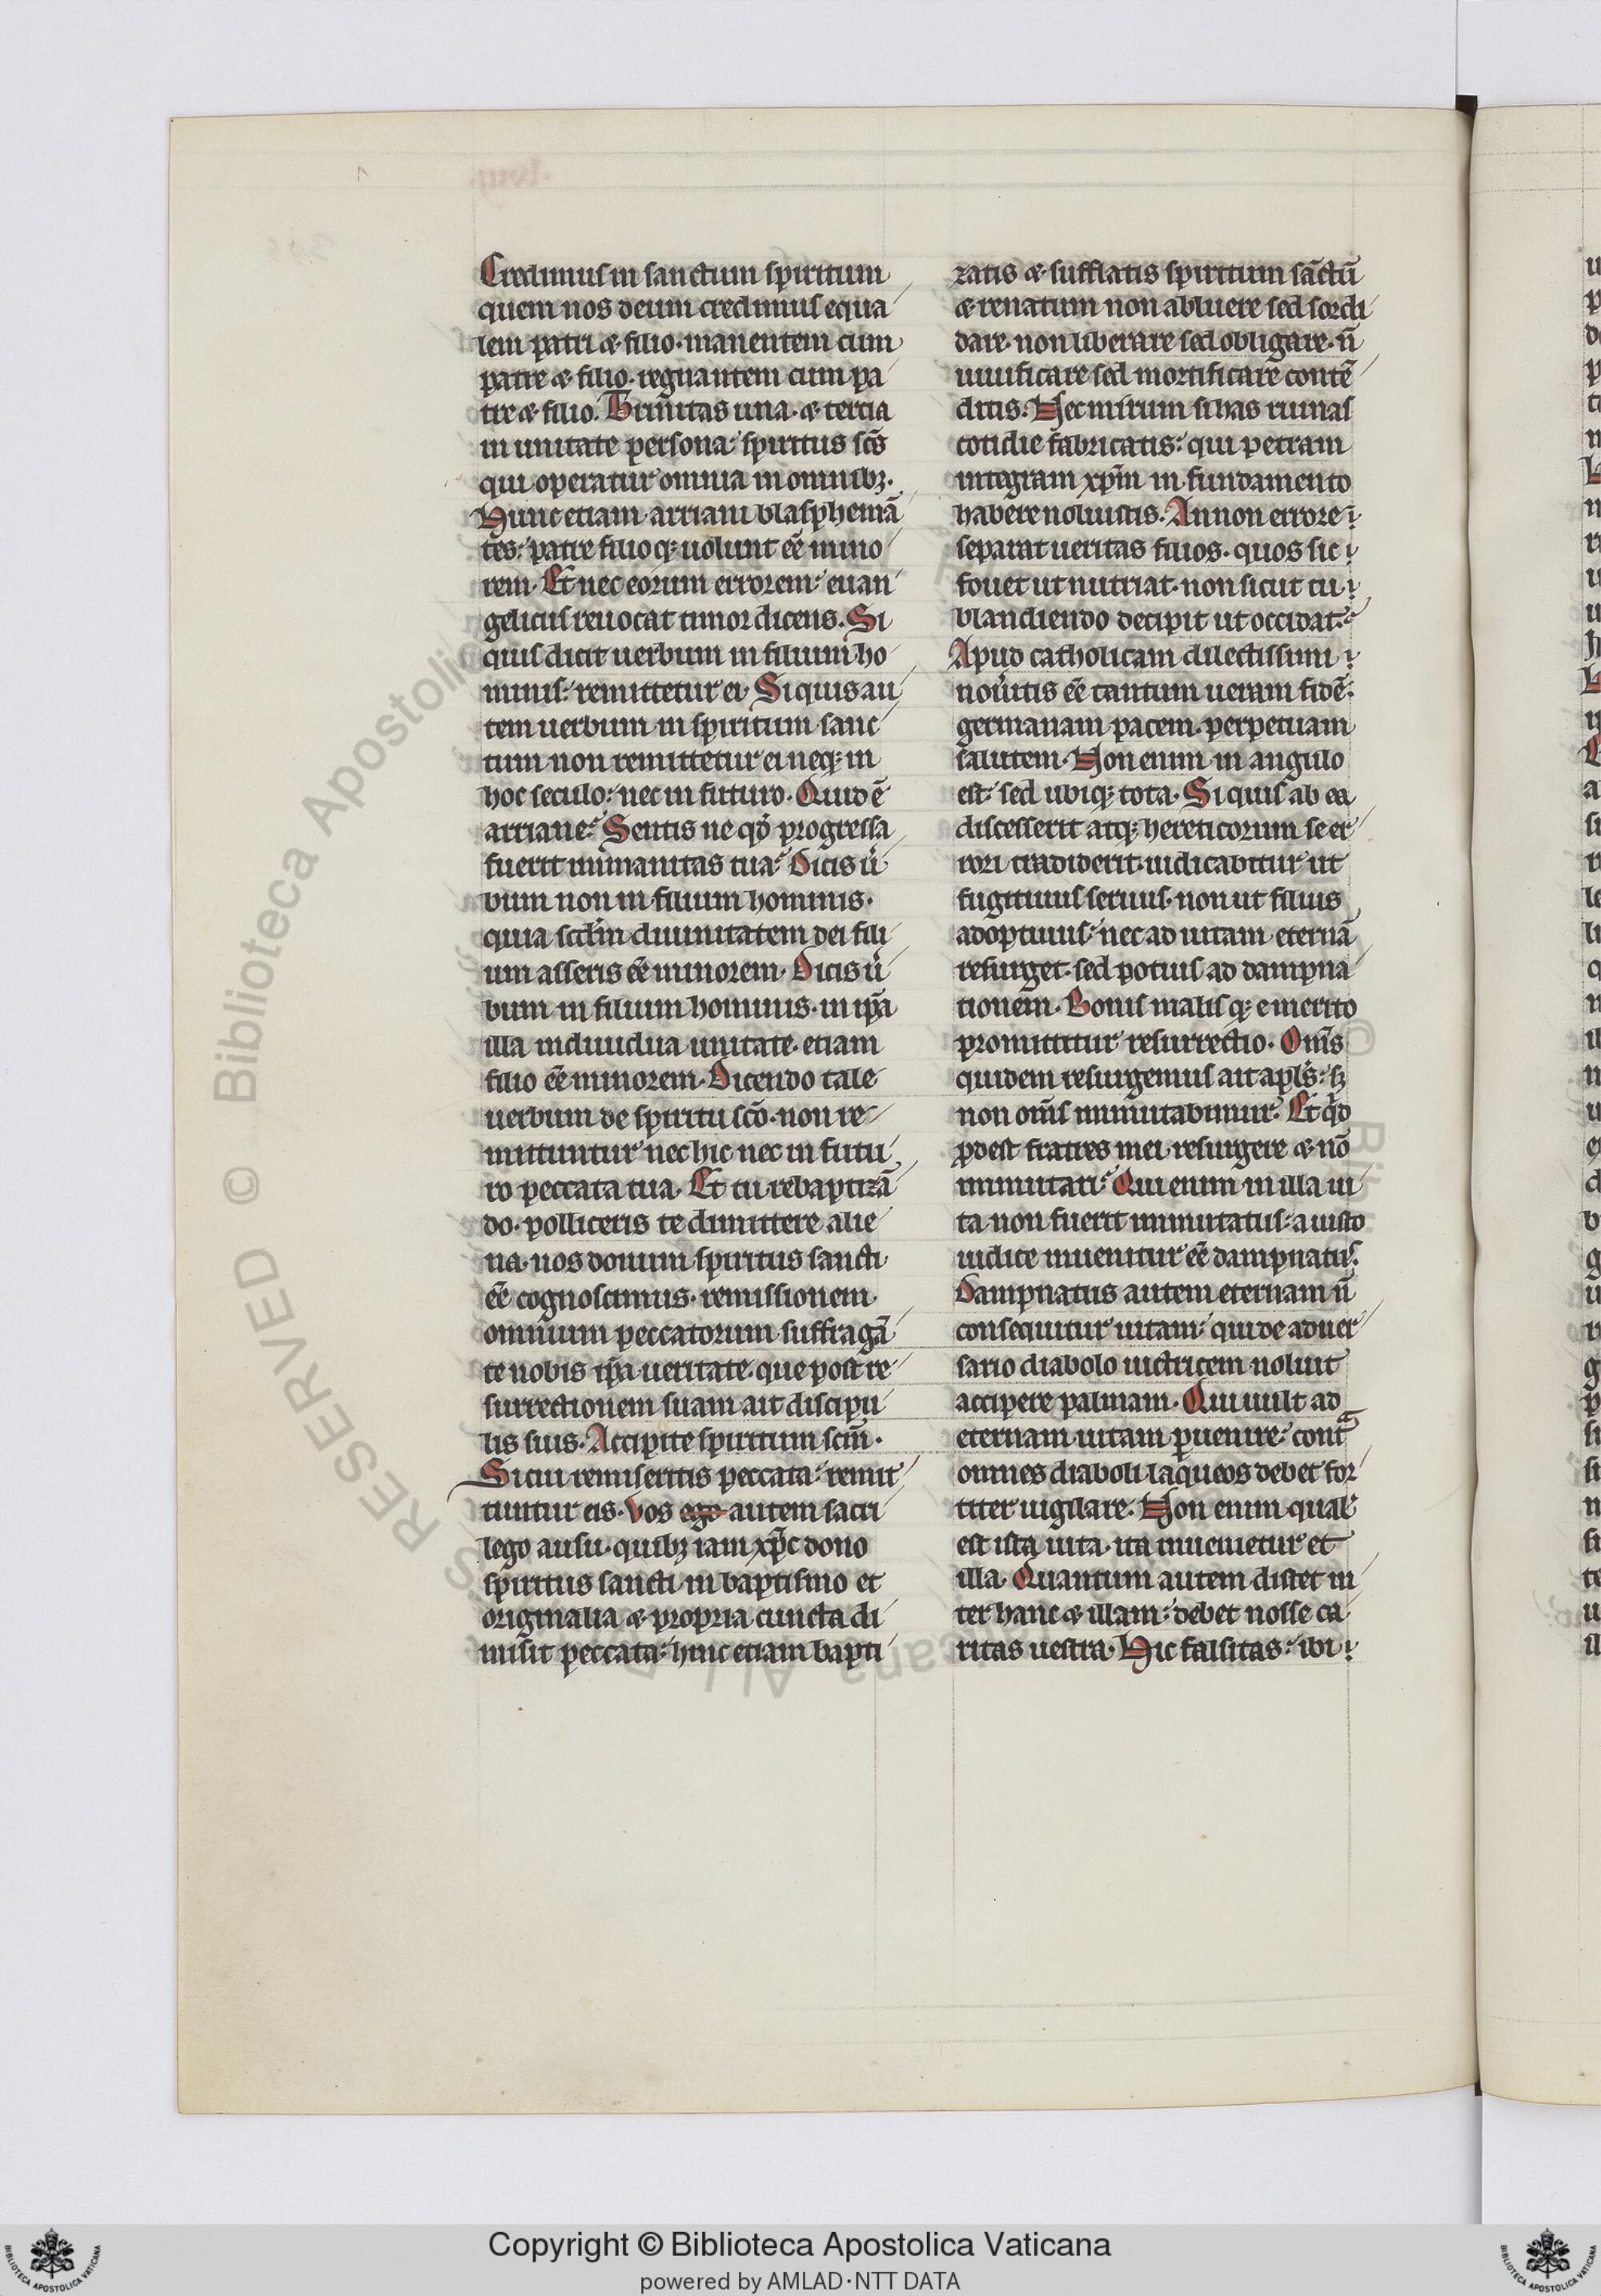 Credimus in sanctum spiritum
quem nos deum credimus equa
lem patri & filio· manentem cum
patre & filio· regnantem cum pa
tre & filio. Trinitas una· & tercia
in unitate persona: spiritus scs̄
qui operatur omnia in omnibꝫ·
Hunc etiam arriani blasphemā
tes: patre filioqꝫ uolunt eē mino
rem· Et nec eorum errorem: euan
gelicus reuocat timor dicens. Si
quis dicit uerbum in filium ho
minis: remittetur ei· Si quis au
tem uerbum in spiritum sanc
tum non remittetur ei neqꝫ in
hoc seculo: nec in futuro· Quid ē
arriane? Sentis ne qđ progressa
fuerit inmanitas tua? Dicis ů
bum non in filium hominis·
quia scdm̄ diuinitatem dei fili
um asseris eē minorem· Dicis ů
bum in filium hominis· in ip̄a
illa indiuidua unitate· etiam
filio eē minorem· Dicendo tale
uerbum de spiritu sc̄o· non re
mittuntur nec hic nec in futu
ro peccata tua· Et tu rebaptizā
do· polliceris te dimittere alie
na· nos donum spiritus sancti
eē cognoscimus· remissionem
omnium peccatorum suffragā
te nobis ip̄a ueritate· que post re
surrectionem suam ait discipu
lis suis· Accipite spiritum scm̄·
Si cui remiseritis peccata: remit
tuntur eis· Vos ego autem sacri
lego ausu· quibꝫ iam xp̄c dono
spiritus sancti in baptismo et
originalia & propria cuncta di
misit peccata: hinc etiam bapti
zatis & sufflatis spiritum sāctū
& renatum non abluere sed sordi
dare· non liberare sed obligare· n̄
uiuificare sed mortificare contē
ditis· Nec mirum si has ruinas
cotidie fabricatis: qui petram
integram xpm̄ in fundamento
habere noluistis· An non errore
separat ueritas filios· quos sic
fouet ut nutriat· non sicut tu
blandiendo decipit ut occidat?
Apud catholicam dilectissimi
nouitis eē tantum ueram fidē:
germanam pacem· perpetuam
salutem· Non enim in angulo
est: sed ubiqꝫ tota· Si quis ab ea
discesserit atqꝫ hereticorum se er
rori tradiderit· iudicabitur ut
fugitiuus seruus· non ut filius
adoptiuus: nec ad uitam eternā
resurget· sed potius ad dampna
tionem· Bonis malisqꝫ e merito
promittitur resurrectio· Om̄s
quidem resurgemus ait apl̄s: sꝫ
non om̄s inmutabimur· Et qͥd
ꝓdest fratres mei resurgere & nō
inmutari? Qui enim in illa ui
ta non fuerit inmutatus: a iusto
iudice inuenitur eē dampnatus·
Dampnatus autem eternam n̄
consequitur uitam: qui de aduer
sario diabolo uictricem noluit
accipere palmam· Qui uult ad
eternam uitam ꝑuenire: contͣ
omnes diaboli laqueos debet for
titer uigilare· Non enim qual
est ista uita· ita inuenietur et
illa· Quantum autem distet in
ter hanc & illam: debet nosse ca
ritas uestra· Hic falsitas: ibi
Copyright © Biblioteca Apostolica Vaticana
powered by AMLAD·NTT DATA